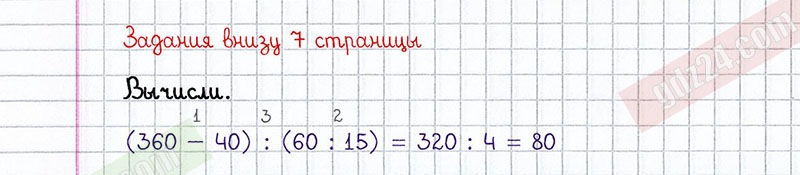 Задания внизу 7 страницы
Вычисли.
1 3 2
(360 – 40) : (60 : 15) = 320 : 4 = 80
gdz24.com
.com